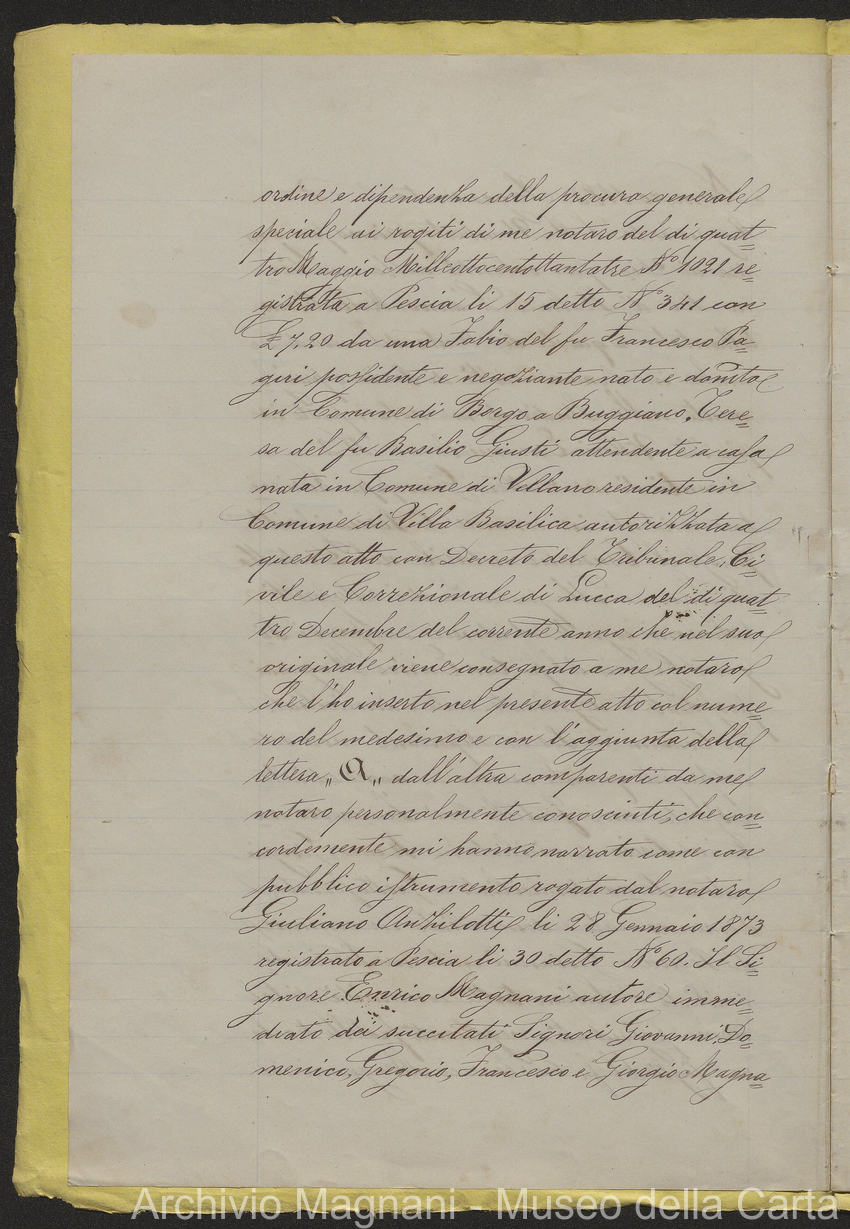 ordine e dipendenza della procura generale
speciale ai rogiti di me notaro del di quat=
tro Maggio Milleottocentottantatre Nº 1021 re=
gistrata a Pescia li 15 detto Nº 341 con
£ 7,20 da una Fabio del fu Francesco Pa=
giri possidente e negoziante nato e domto
in Comune di Borgo a Buggiano, Tere=
sa del fu Basilio Giusti attendente a casa
nata in Comune di Vellano residente in
Comune di Villa Basilica autorizzata a
questo atto con Decreto del Tribunale, Ci=
vile e Correzionale di Lucca del di quat=
tro Decembre del corrente anno che nel suo
originale viene consegnato a me notaro
che l'ho inserto nel presente atto col nume=
ro del medesimo e con l'aggiunta della
lettera „A„ dall'altra comparenti da me
notaro personalmente conosciuti, che con=
cordemente mi hanno narrato come con
pubblico istrumento rogato dal notaro
Giuliano Anzilotti li 28 Gennaio 1873
registrato a Pescia li 30 detto Nº 60. Il Si=
gnore Enrico Magnani autore imme=
diato dei succitati Signori Giovanni, Do=
menico, Gregorio, Francesco e Giorgio Magna=
Archivio Magnani - Museo della Carta